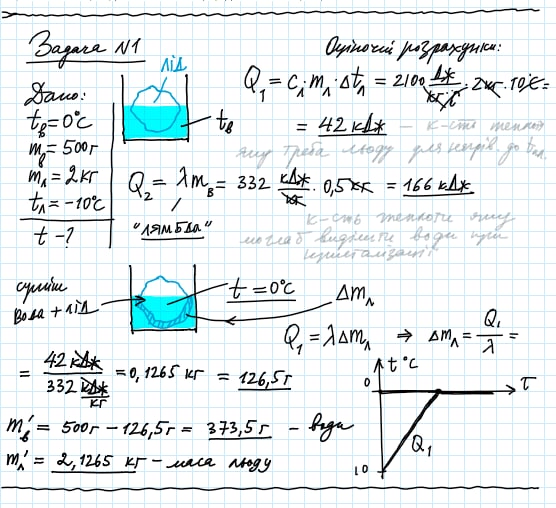 Задача N1
Оціночні розрахунки:
лід
Дано:
tв=0°C
mв=500г
mл=2кг
tл=-10°C
t-?
tв
Q₁ = Cл·mл·Δtл = 2100 Дж/кг·°C · 2кг·10°C =
= 42 кДж - к-сть теплоти
яку треба льоду для нагрів. до tпл.
Q₂ = λmв = 332 кДж/кг · 0,5кг = 166 кДж
"лямбда"
к-сть теплоти яку
могла б виділити вода при
кристалізації
суміш
вода + лід
t=0°C
Δmл
Q₁ = λΔmл ⇒ Δmл = Q₁/λ =
= 42 кДж / 332 кДж/кг = 0,1265 кг = 126,5г
mв' = 500г - 126,5г = 373,5г - води
mл' = 2,1265 кг - маса льоду
t°C
0
τ
Q₁
10